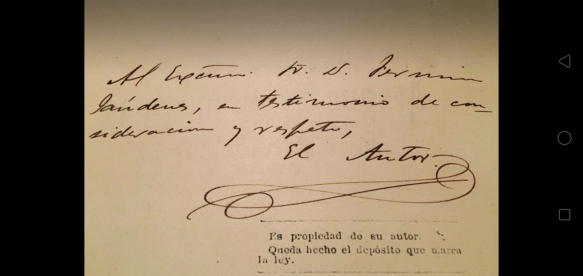 Al Excmo. Sr. D. Fermin
en testimonio de con-
sideracion y respeto,
El Autor.
Es propiedad de su autor.
Queda hecho el depósito que marca
la ley.